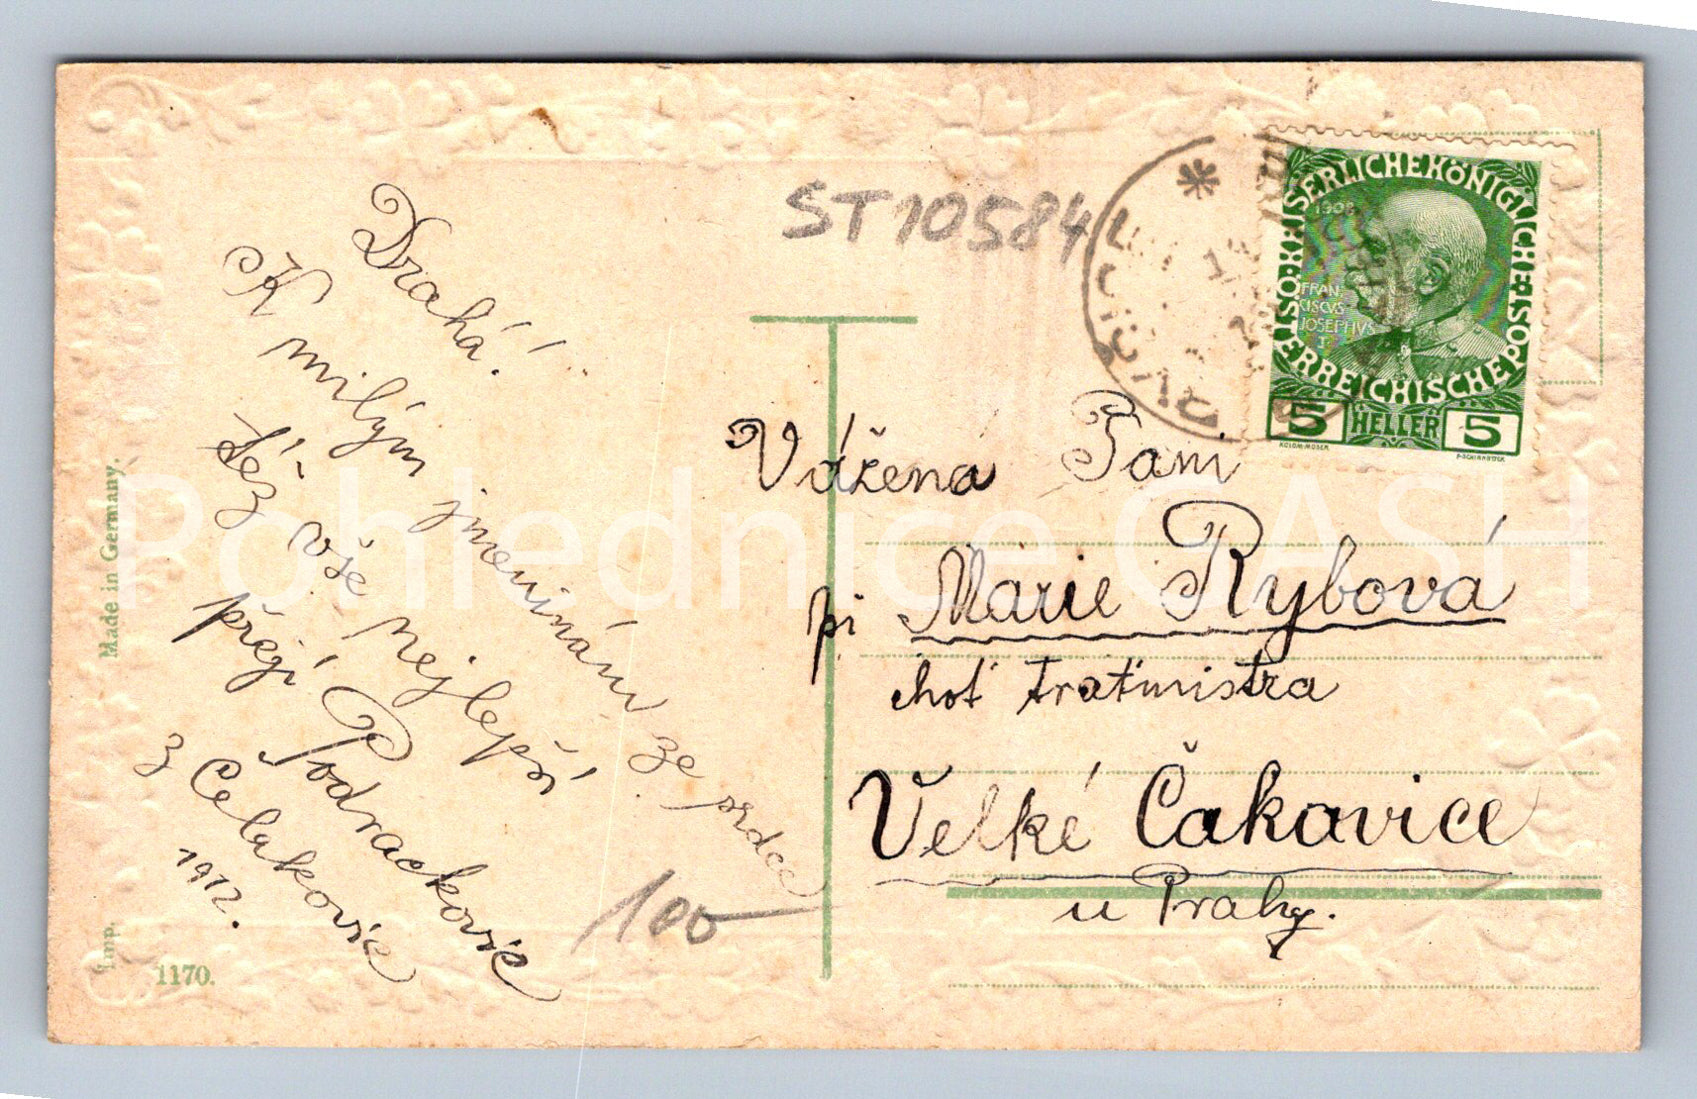 Drahá!
K milým jmeninám ze srdce
též vše nejlepší
přejí Podrackovic
z Čelakovic
1912.
ST10584
100
Vážená Paní
pí Marie Rybová
choť traťmistra
Velké Čakovice
u Prahy.
KAISERLICHE KÖNIGLICHE
ÖSTERREICHISCHE POST
1908
FRAN
CISCVS
JOSEPHVS
I
5 HELLER 5
KOLOM·MOSER
F·SCHIRNBÖCK
Made in Germany.
Imp.
1170.
Pohlednice CASH